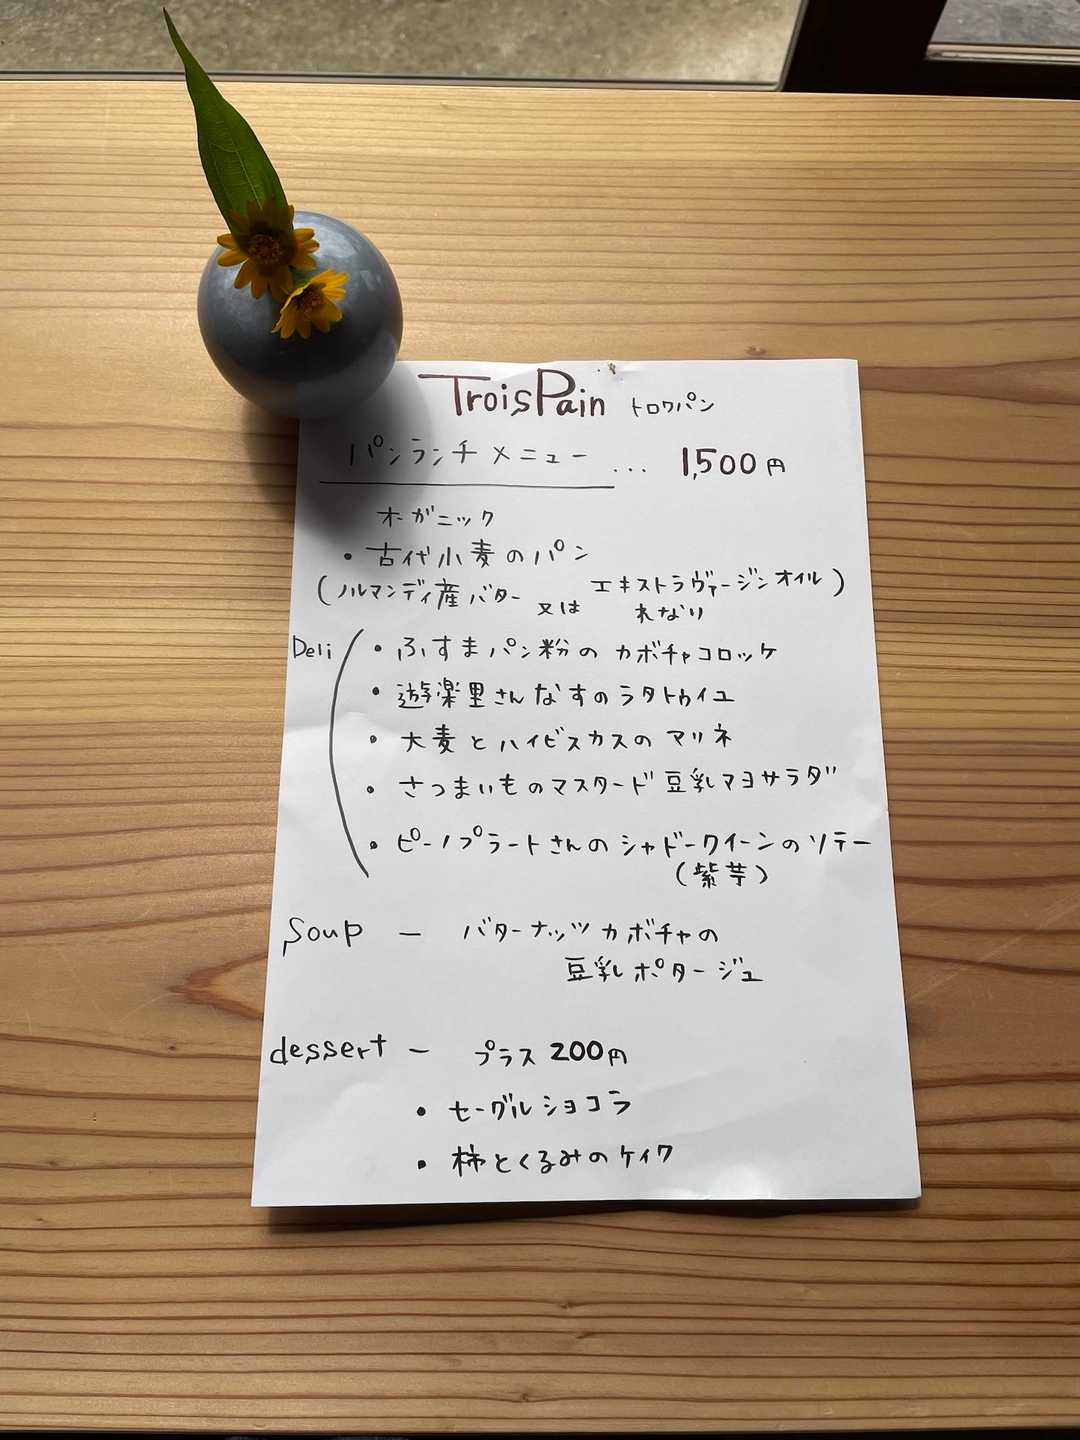 TroisPain トロワパン
パンランチメニュー ... 1,500円
オーガニック
・古代小麦のパン
(ノルマンディ産バター 又は エキストラヴァージンオイル)
れなり
Deli ・ふすまパン粉のカボチャコロッケ
・遊楽里さんなすのラタトゥイユ
・大麦とハイビスカスのマリネ
・さつまいものマスタード豆乳マヨサラダ
・ピーノプラートさんのシャドークイーンのソテー
(紫芋)
Soup ー バターナッツカボチャの
豆乳ポタージュ
dessert ー プラス200円
・セーグルショコラ
・柿とくるみのケイク